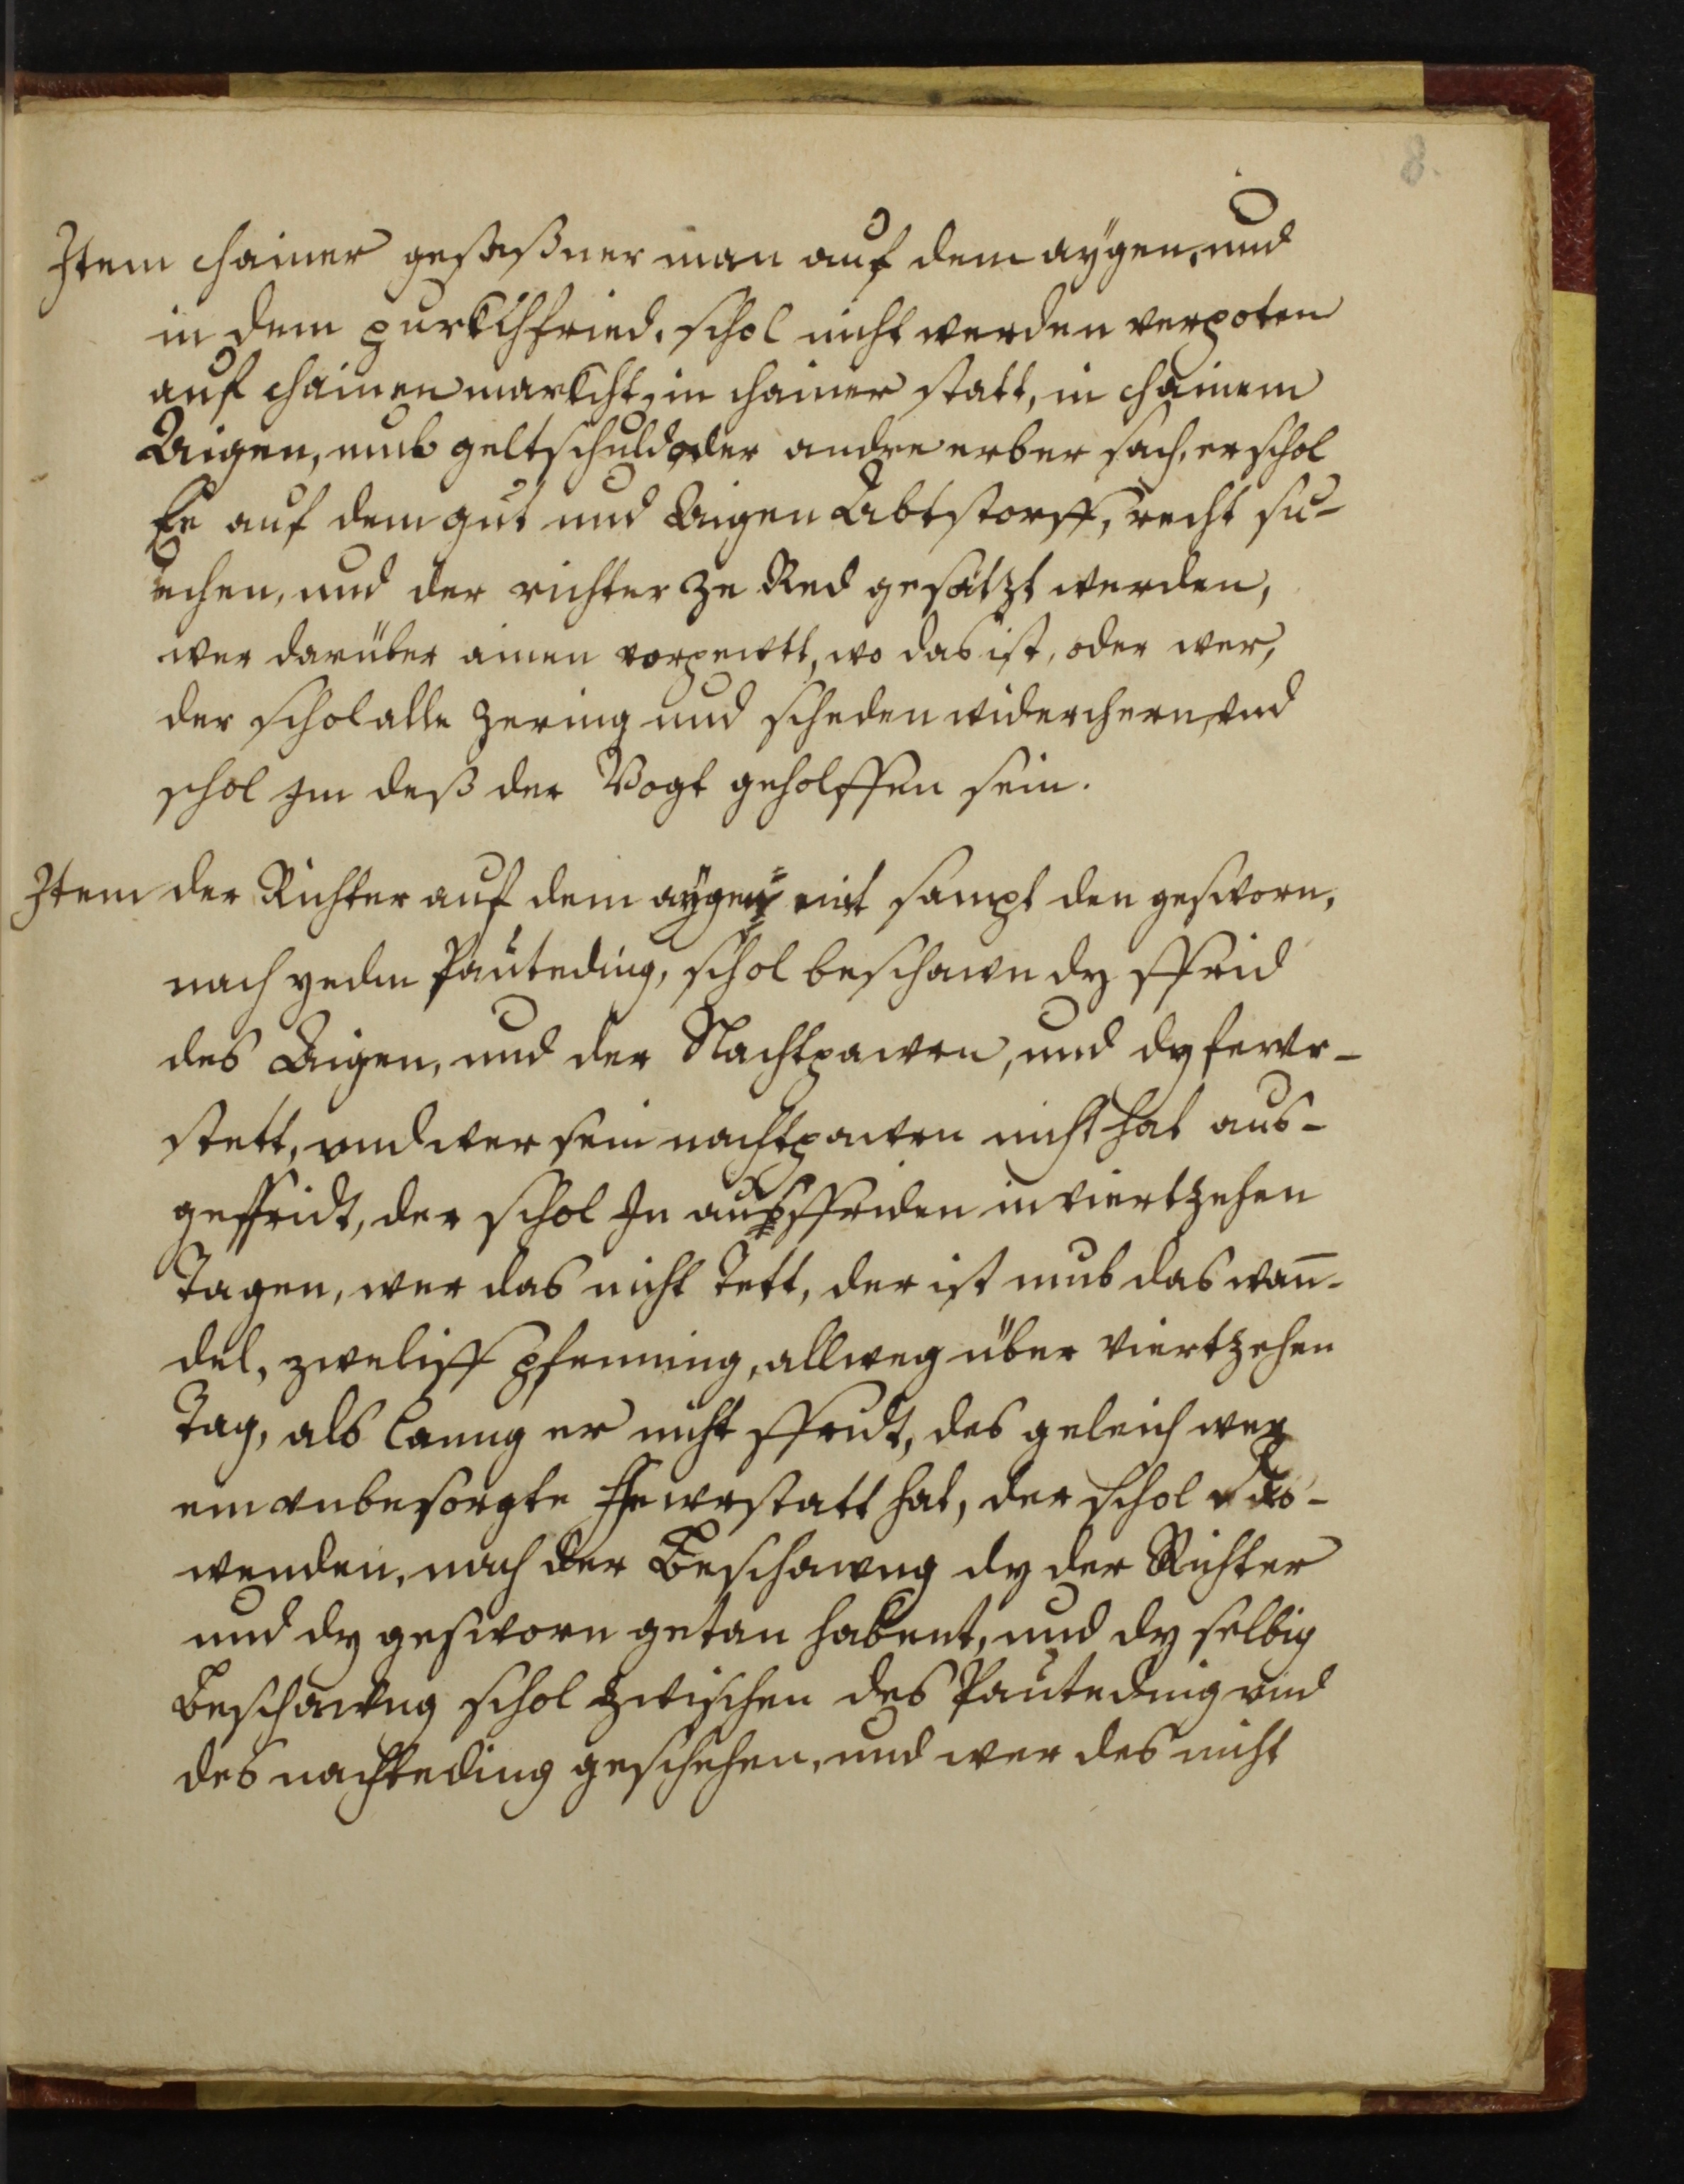 8.
Item chainer gesäßner man auf dem aygen, und
in dem purkchfried, schol nicht werden verpoten
auf chainen markcht, in chainer statt, in chainem
Aigen, umb geltschuld oder andre erber sach, er schol
Ee auf dem gut und Aigen Abtstorff, recht su-
echen, und der richter ze Red gesätzt werden,
wer darüber ainen verpewtt, wo das ist, oder wer,
der schol alle zerung und scheden widerchern, vnd
schol im deß der Vogt geholffen sein.
Item der Richter auf dem aygen mit sampt den gesworn,
nach yedm Pauteding, schol beschawn dy ffrid
des Aigen, und der Nachtpawrn, und dy fewr-
stett, vnd wer sein nachtpawrn nicht hat aus-
geffridt, der schol In ausffriden in viertzehen
Tagen, wer das nicht Tett, der ist umb das wan̄-
del, zweliff pfenning, allweg über viertzehen
Tag, als lanng er nicht ffridt, des geleich wer
ein unbesorgte ffewrstatt hat, der schol das
wenden, nach der Beschawng dy der Richter
und dy gesworn getan habent, und dy selbig
Beschawng schol zwischen des Pauteding vnd
des nachteding geschehen, und wer des nicht